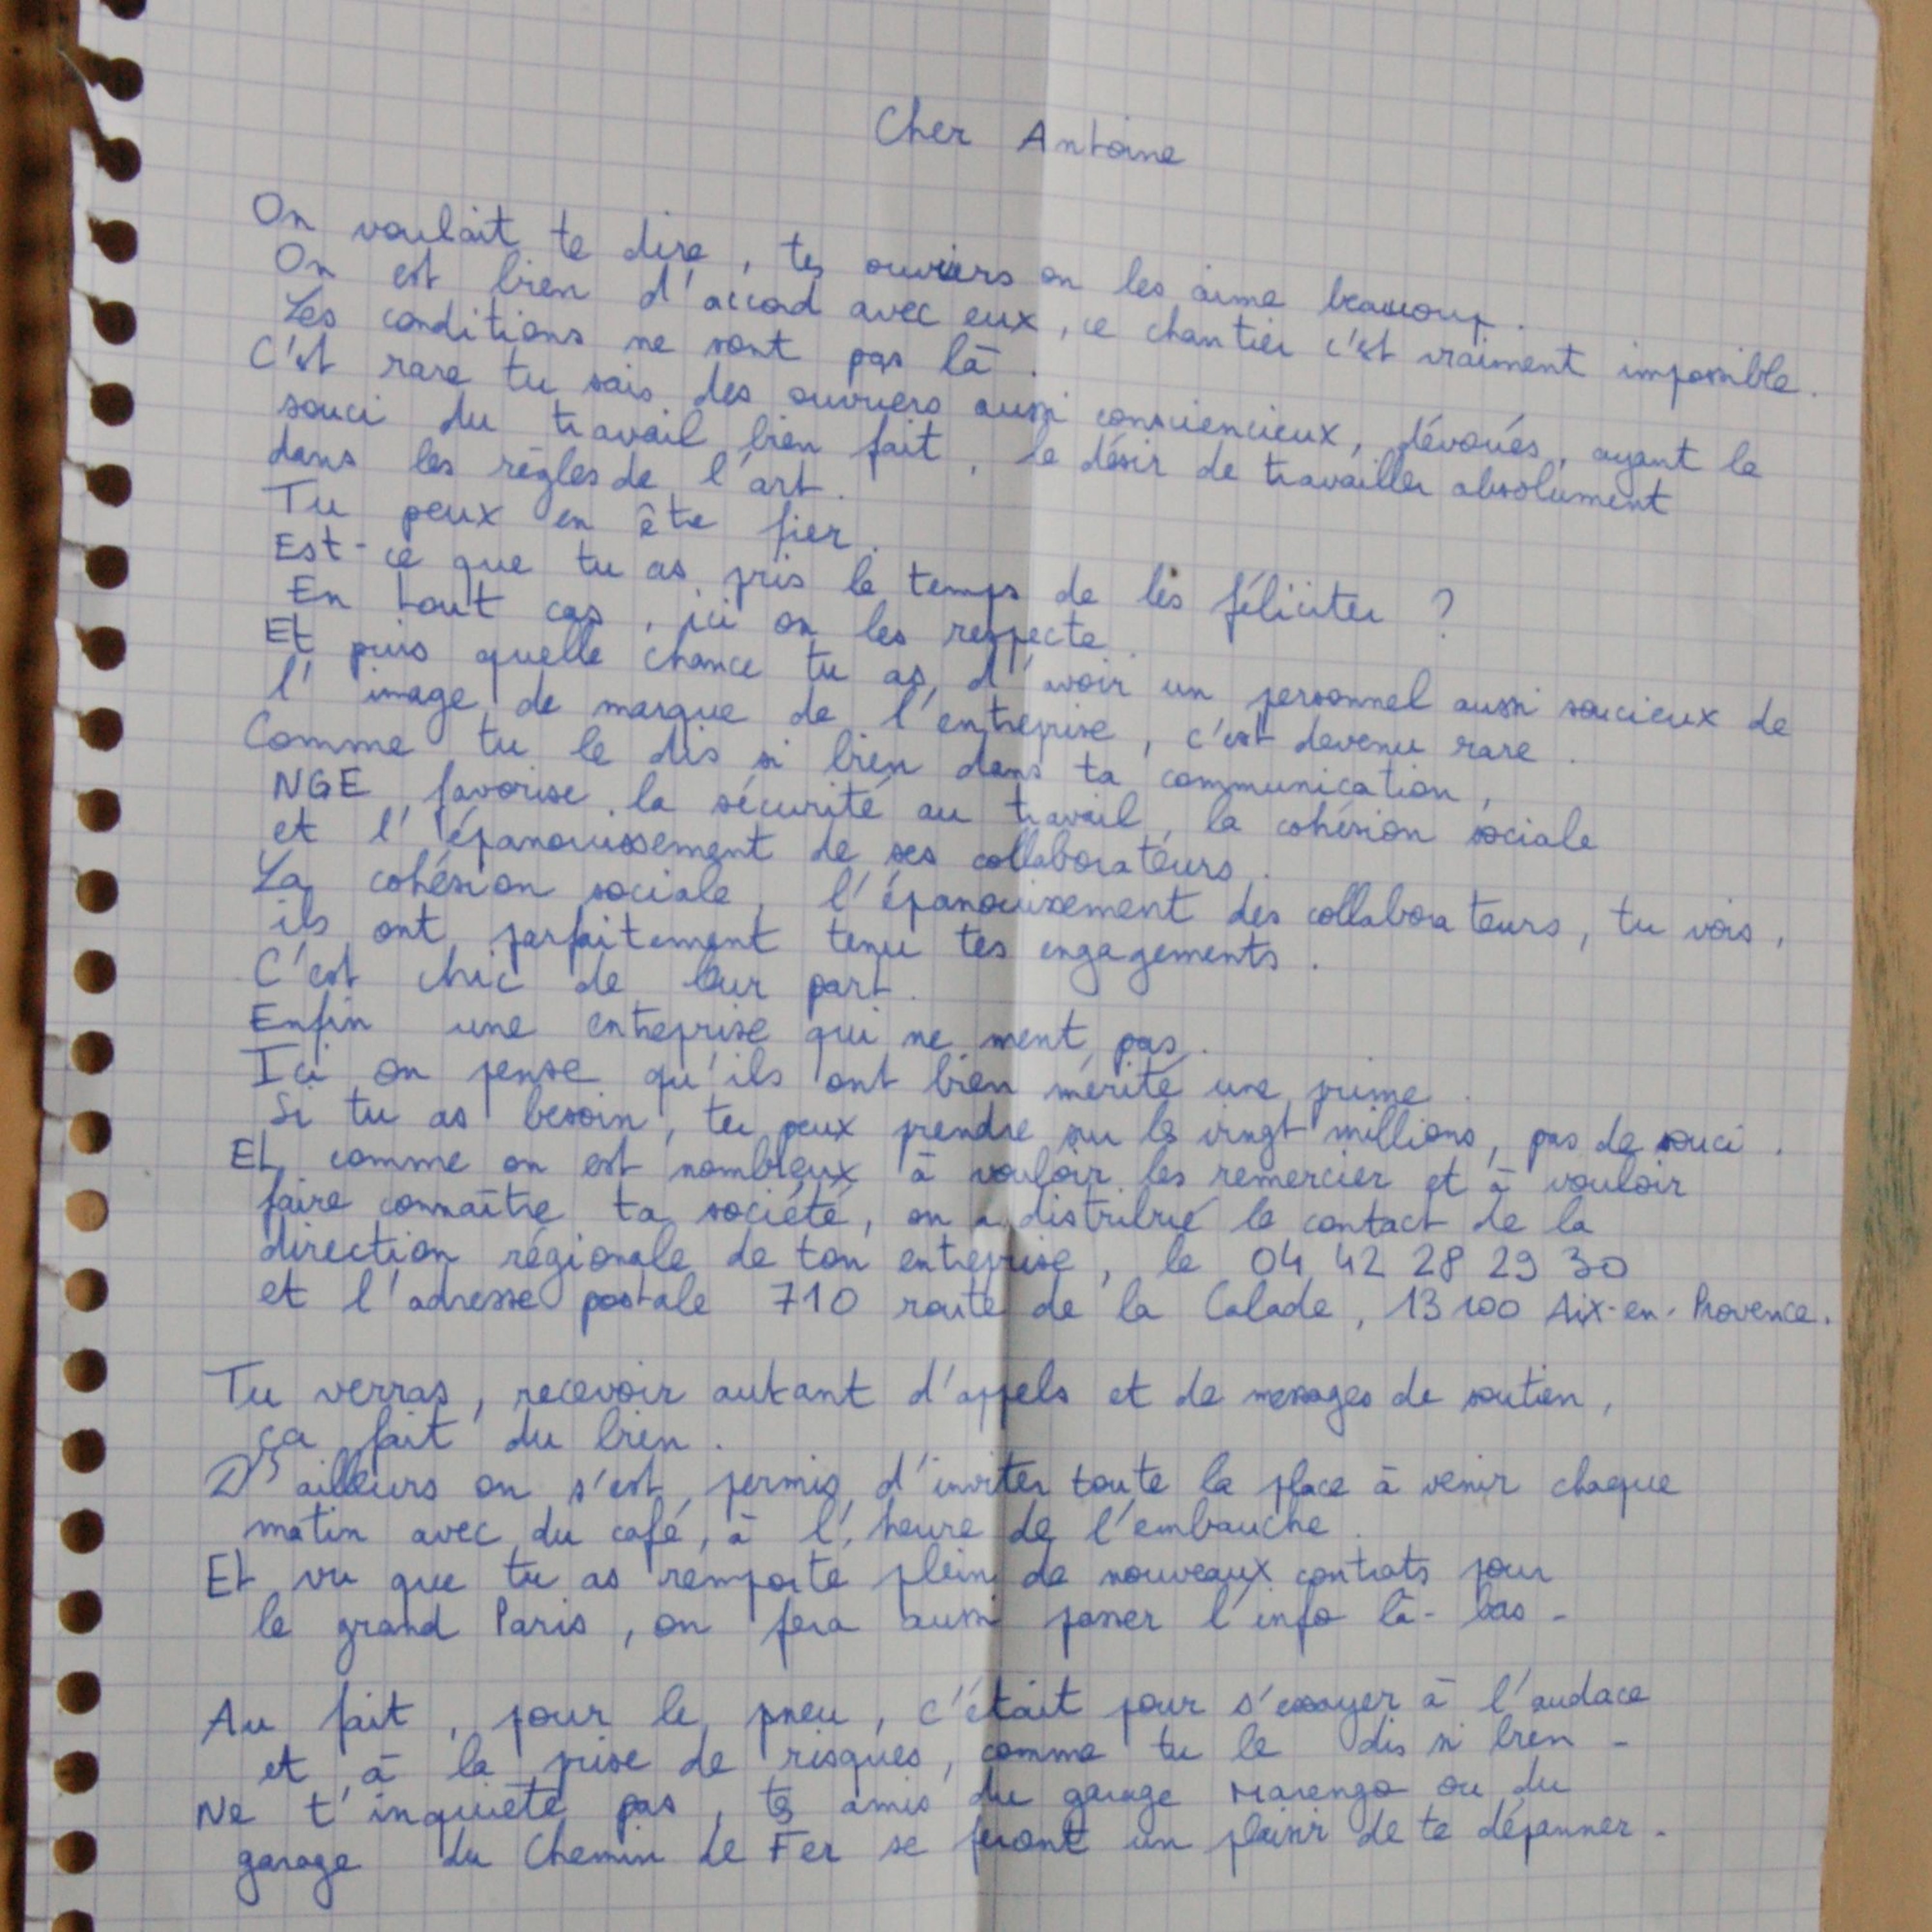 Cher Antoine
On voulait te dire, tes ouvriers on les aime beaucoup.
On est bien d'accord avec eux, ce chantier c'est vraiment impossible.
Les conditions ne sont pas là.
C'est rare tu sais des ouvriers aussi consciencieux, dévoués, ayant le
souci du travail bien fait, le désir de travailler absolument
dans les règles de l'art.
Tu peux en ête fier.
Est-ce que tu as pris le temps de les féliciter ?
En tout cas, ici on les respecte.
Et puis quelle chance tu as, d'avoir un personnel aussi soucieux de
l'image de marque de l'entreprise, c'est devenu rare.
Comme tu le dis si bien dans ta communication,
NGE favorise la sécurité au travail, la cohésion sociale
et l'épanouissement de ses collaborateurs.
La cohésion sociale, l'épanouissement des collaborateurs, tu vois,
ils ont parfaitement tenu tes engagements.
C'est chic de leur part.
Enfin une entreprise qui ne ment pas.
Ici on pense qu'ils ont bien mérité une prime.
Si tu as besoin, tu peux prendre sur les vingt millions, pas de souci.
Et comme on est nombreux à vouloir les remercier et à vouloir
faire connaître ta société, on a distribué le contact de la
direction régionale de ton entreprise, le 04 42 28 29 30
et l'adresse postale 710 route de la Calade, 13100 Aix-en-Provence.
Tu verras, recevoir autant d'appels et de messages de soutien,
ça fait du bien.
D'ailleurs on s'est permis d'inviter toute la place à venir chaque
matin avec du café, à l'heure de l'embauche.
Et vu que tu as remporté plein de nouveaux contrats pour
le grand Paris, on fera aussi passer l'info là-bas -
Au fait, pour le pneu, c'était pour s'essayer à l'audace
et à la prise de risques, comme tu le dis si bien -
Ne t'inquiète pas, tes amis du garage Marengo ou du
garage du Chemin de Fer se feront un plaisir de te dépanner -